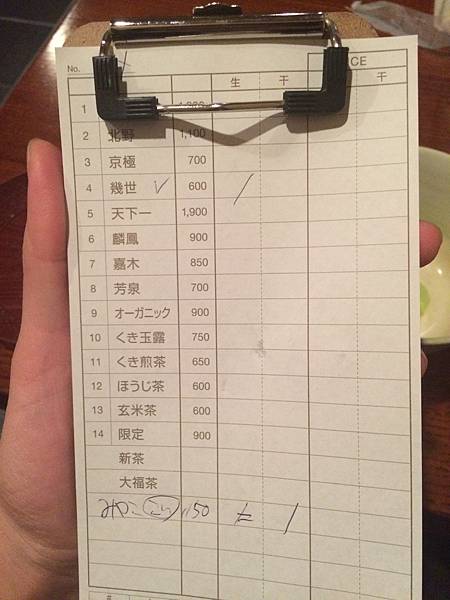 No.
CE
生 干 干
1
2 北野 1,100
3 京極 700
4 幾世 ✓ 600 /
5 天下一 1,900
6 麟鳳 900
7 嘉木 850
8 芳泉 700
9 オーガニック 900
10 くき玉露 750
11 くき煎茶 650
12 ほうじ茶 600
13 玄米茶 600
14 限定 900
新茶
大福茶
1150
#